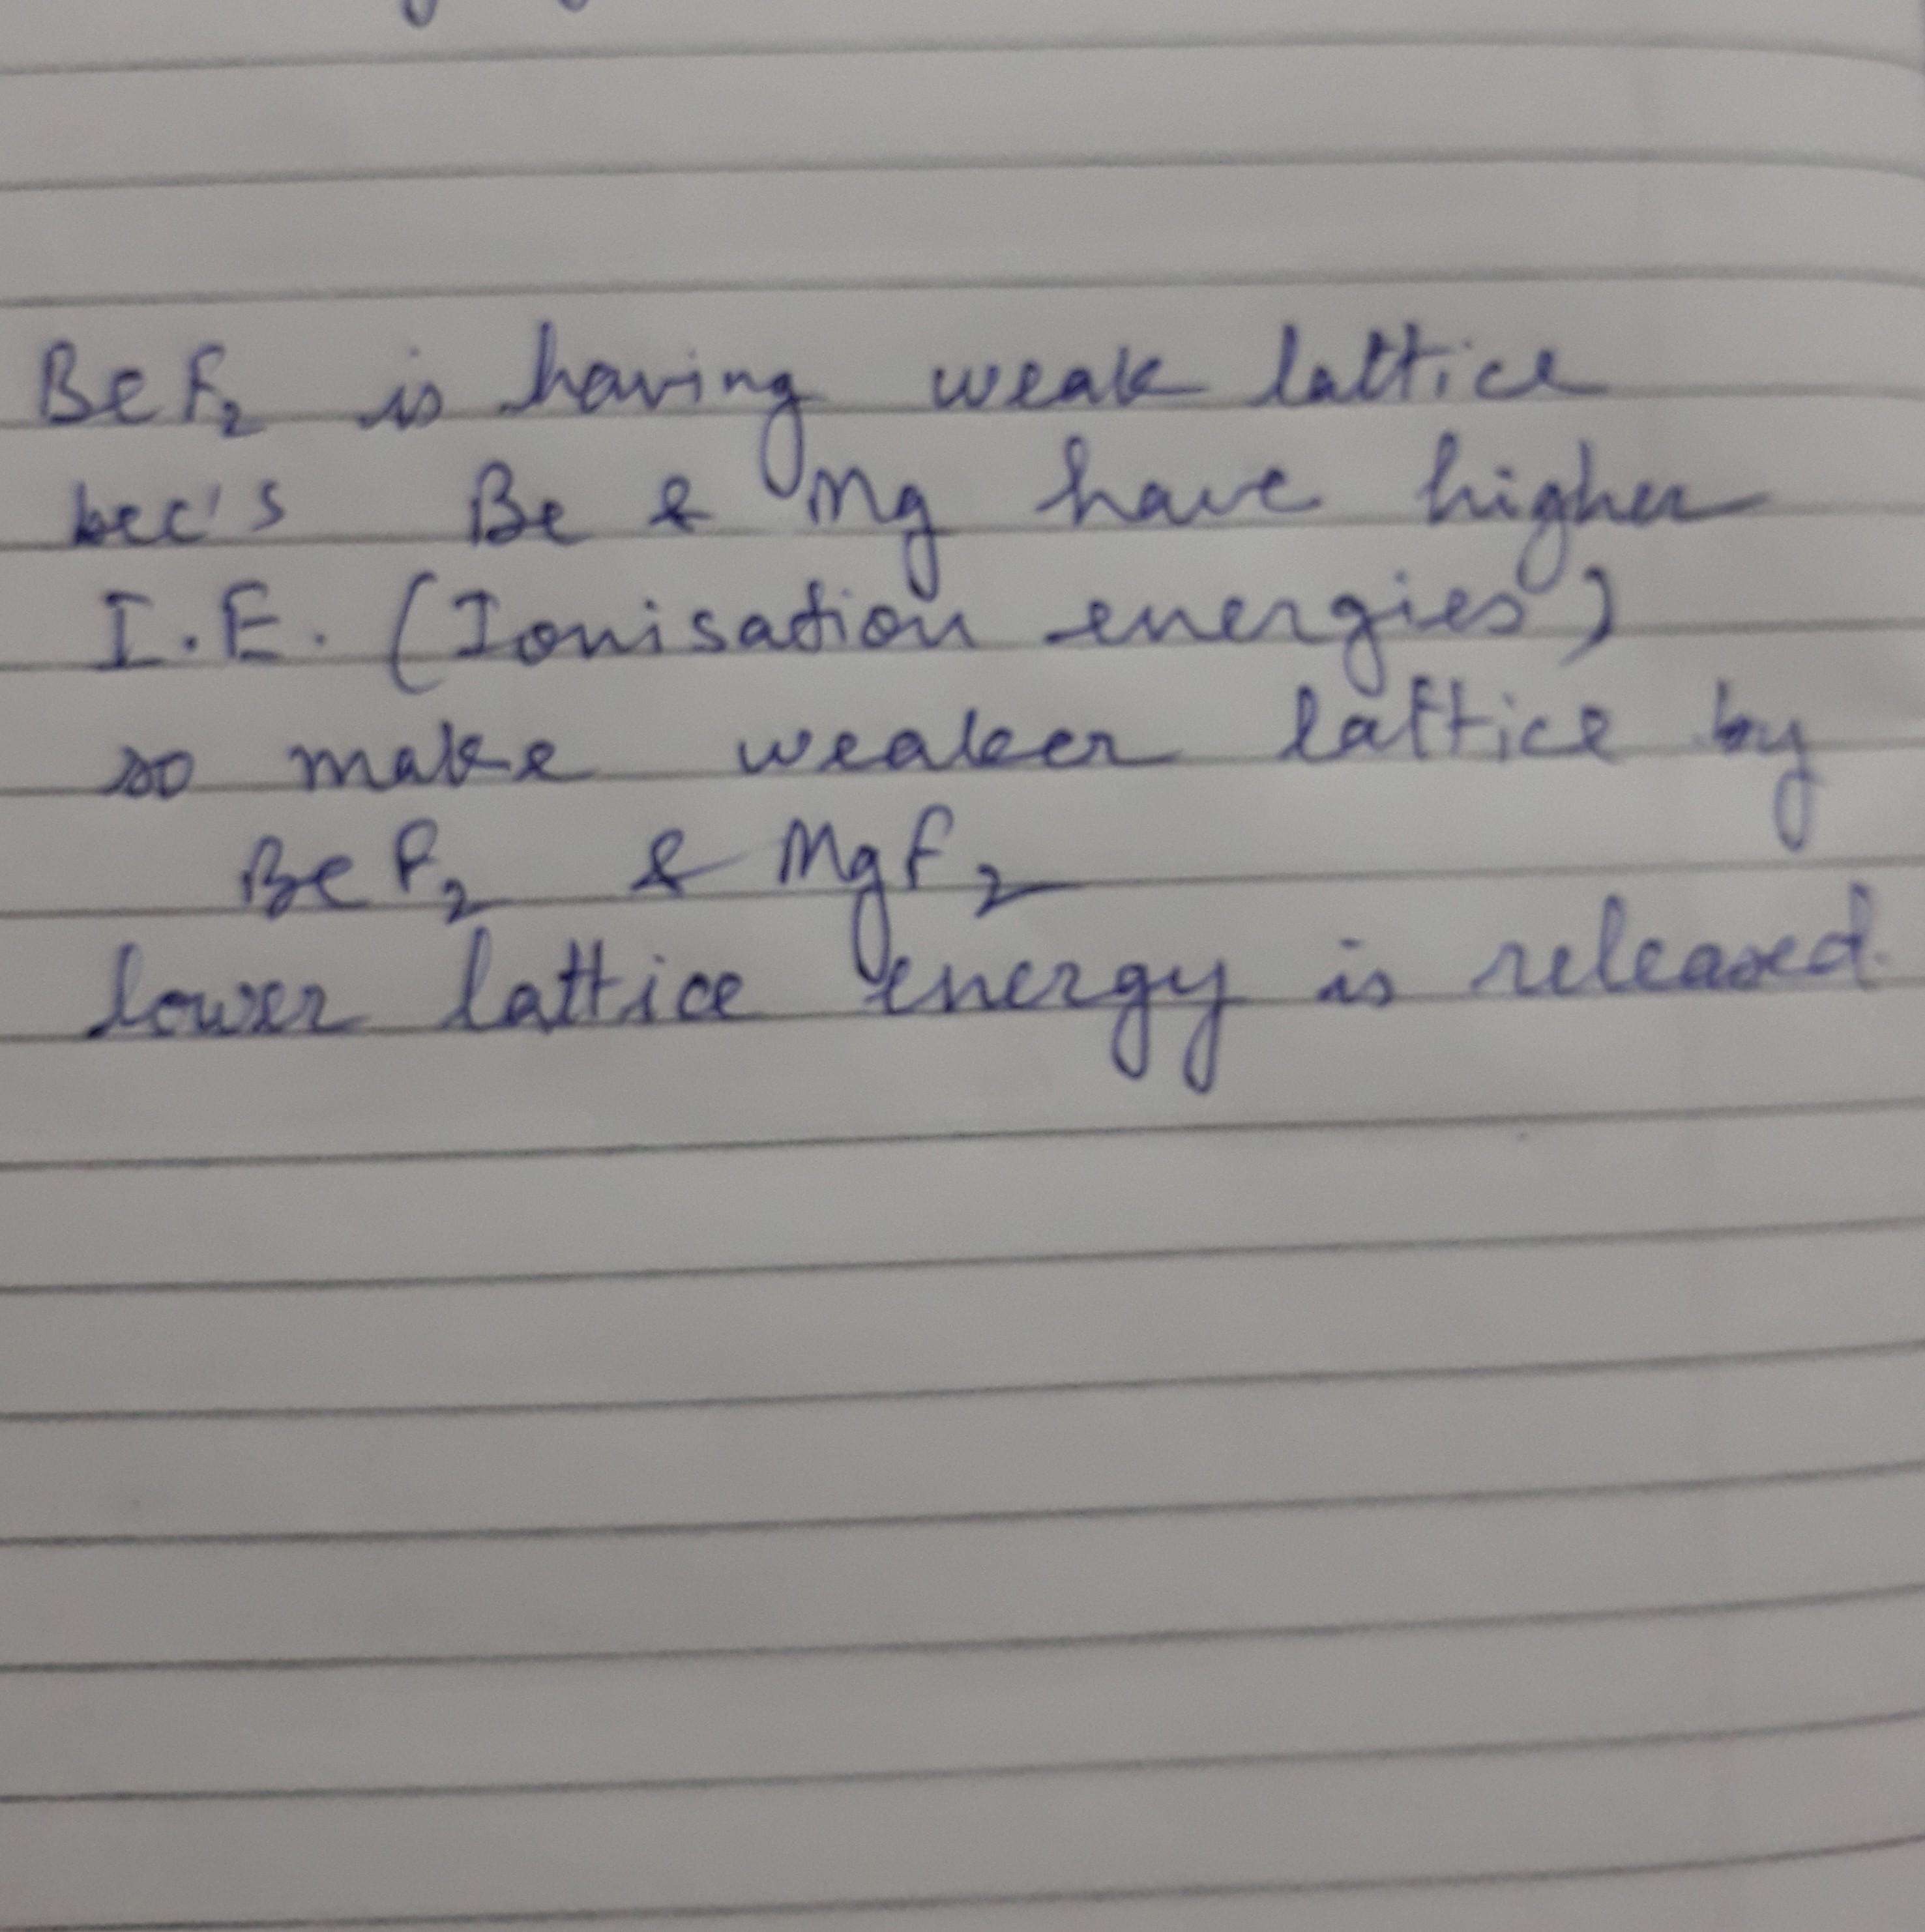 BeF₂ is having weak lattice
bec's Be & Mg have higher
I.E. (Ionisation energies)
so make weaker lattice by
BeF₂ & MgF₂
lower lattice energy is released.